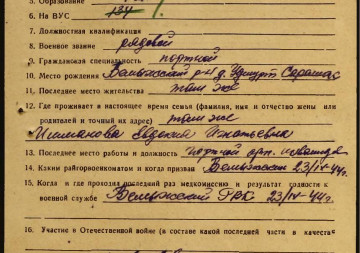 5. Образование
6. На ВУС 134
7. Должностная квалификация
8. Военное звание рядовой
9. Гражданская специальность портной
10. Место рождения р-н д.
11. Последнее место жительства там же
12. Где проживает в настоящее время семья (фамилия, имя и отчество жены или
родителей и точный их адрес) там же
Евдокия Игнатьевна
13. Последнее место работы и должность портной арт.
14. Каким райгорвоенкоматом и когда призван 23/IV-44г.
15. Когда и где проходил последний раз медкомиссию и результат годности к
военной службе РВК 23/IV-44г.
16. Участие в Отечественной войне (в составе какой последней части в качестве